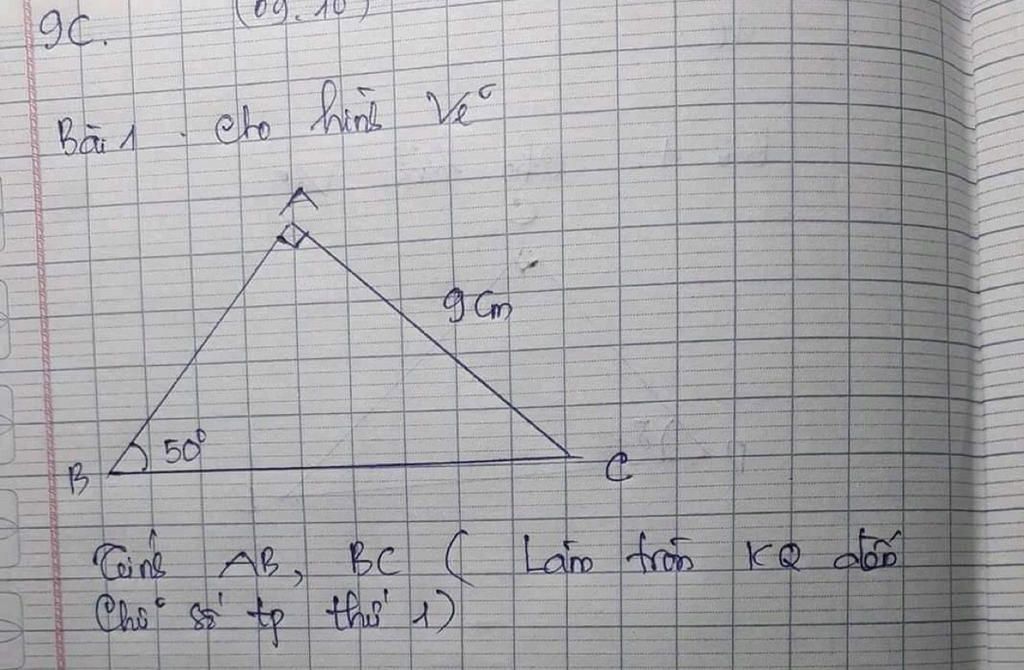 9C.
Bài 1. Cho hình vẽ
A
9 Cm
50°
B
C
Tính AB, BC ( Làm tròn KQ đến
Chữ số tp thứ 1)